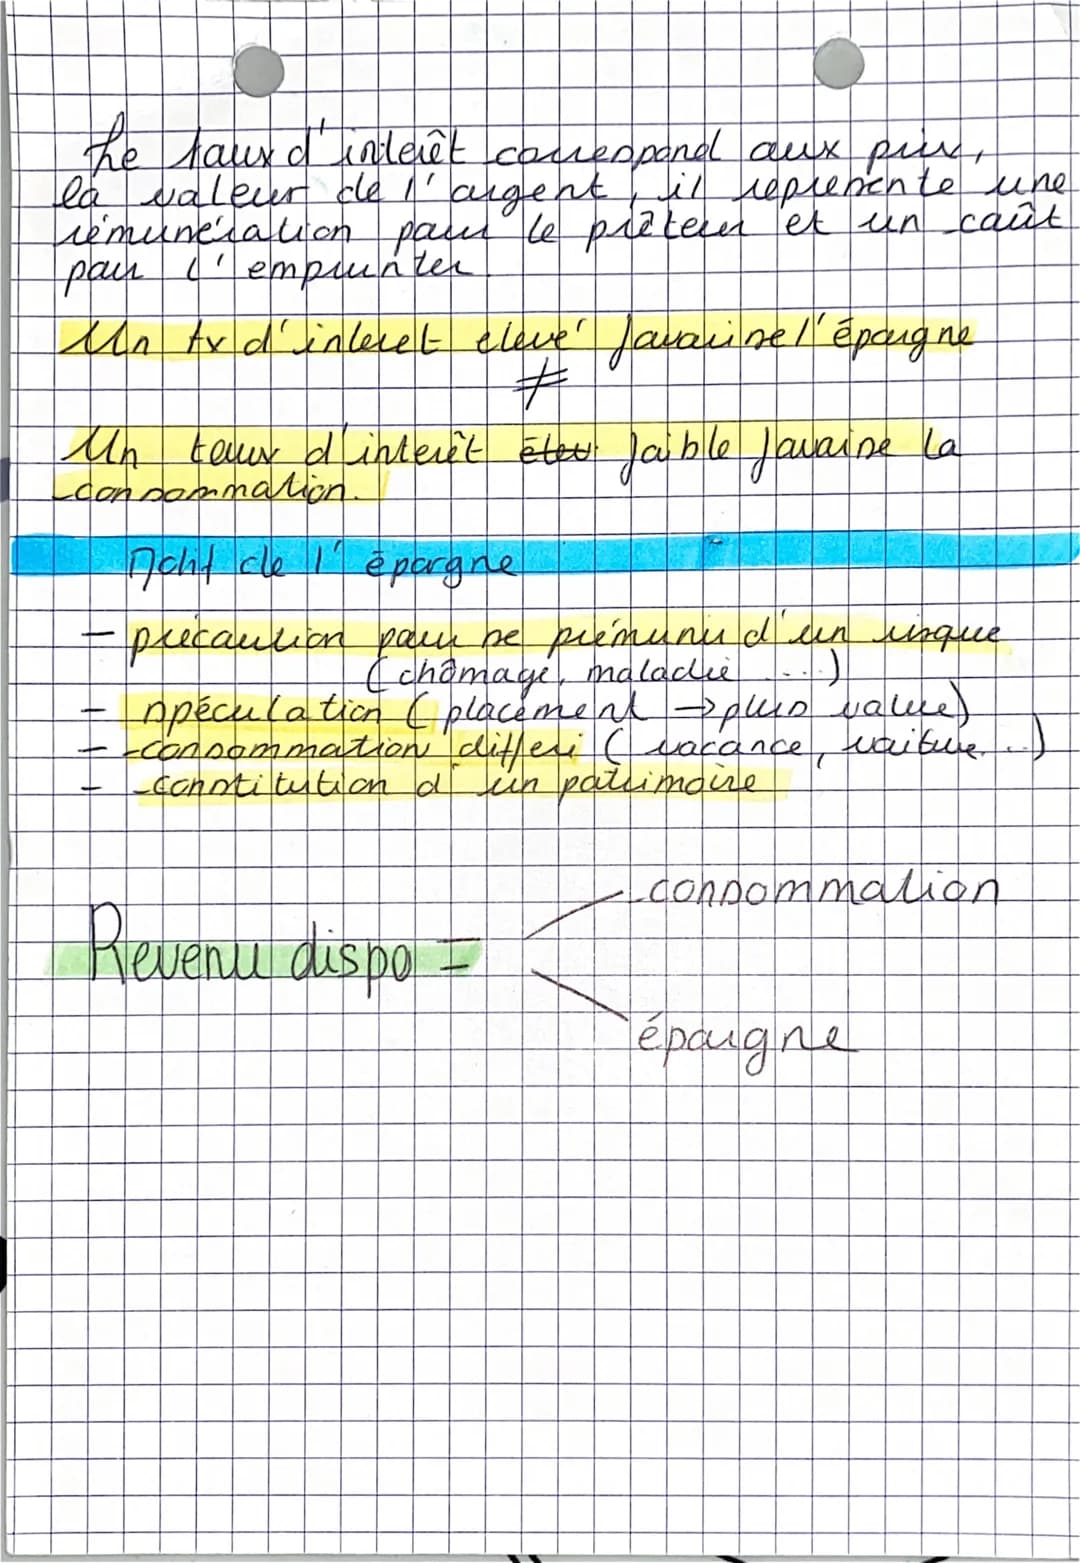 Le taux d'intérêt correspond aux prix,
la valeur de l'argent, il représente une
rémunération pour le prêteur et un coût
pour l'emprunter.
Un tx d'interet elevé favorise l'épargne
≠
Un taux d'interêt élev faible favorise la
consommation.
Motif de l'épargne
- précaution pour se prémunir d'un risque
(chômage, maladie ...)
- spéculation (placement → plus value)
- consommation differi (vacance, voiture...)
- constitution d'un patrimoire
Revenu dispo =
consommation
épargne